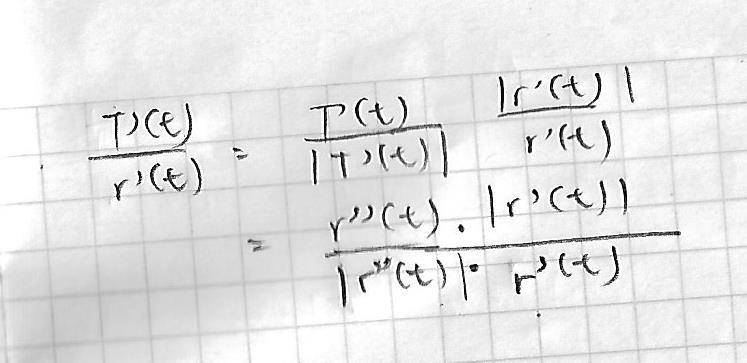 T'(t)/r'(t) = T'(t)/|T'(t)| |r'(t)|/r'(t)
= r''(t).|r'(t)|/|r''(t)|· r'(t)